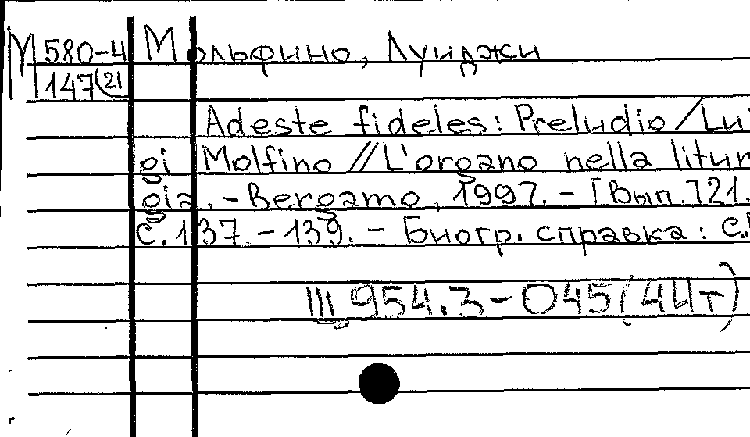 М 580-4 Мольфино, Луиджи
147(21
Adeste fideles: Preludio / Lui
gi Molfino // L'organo nella litur
gia. - Bergamo, 1997. - [Вып.]21.
С. 137. - 139. - Биогр. справка: с.
Щ 954.3-045(4Ит)